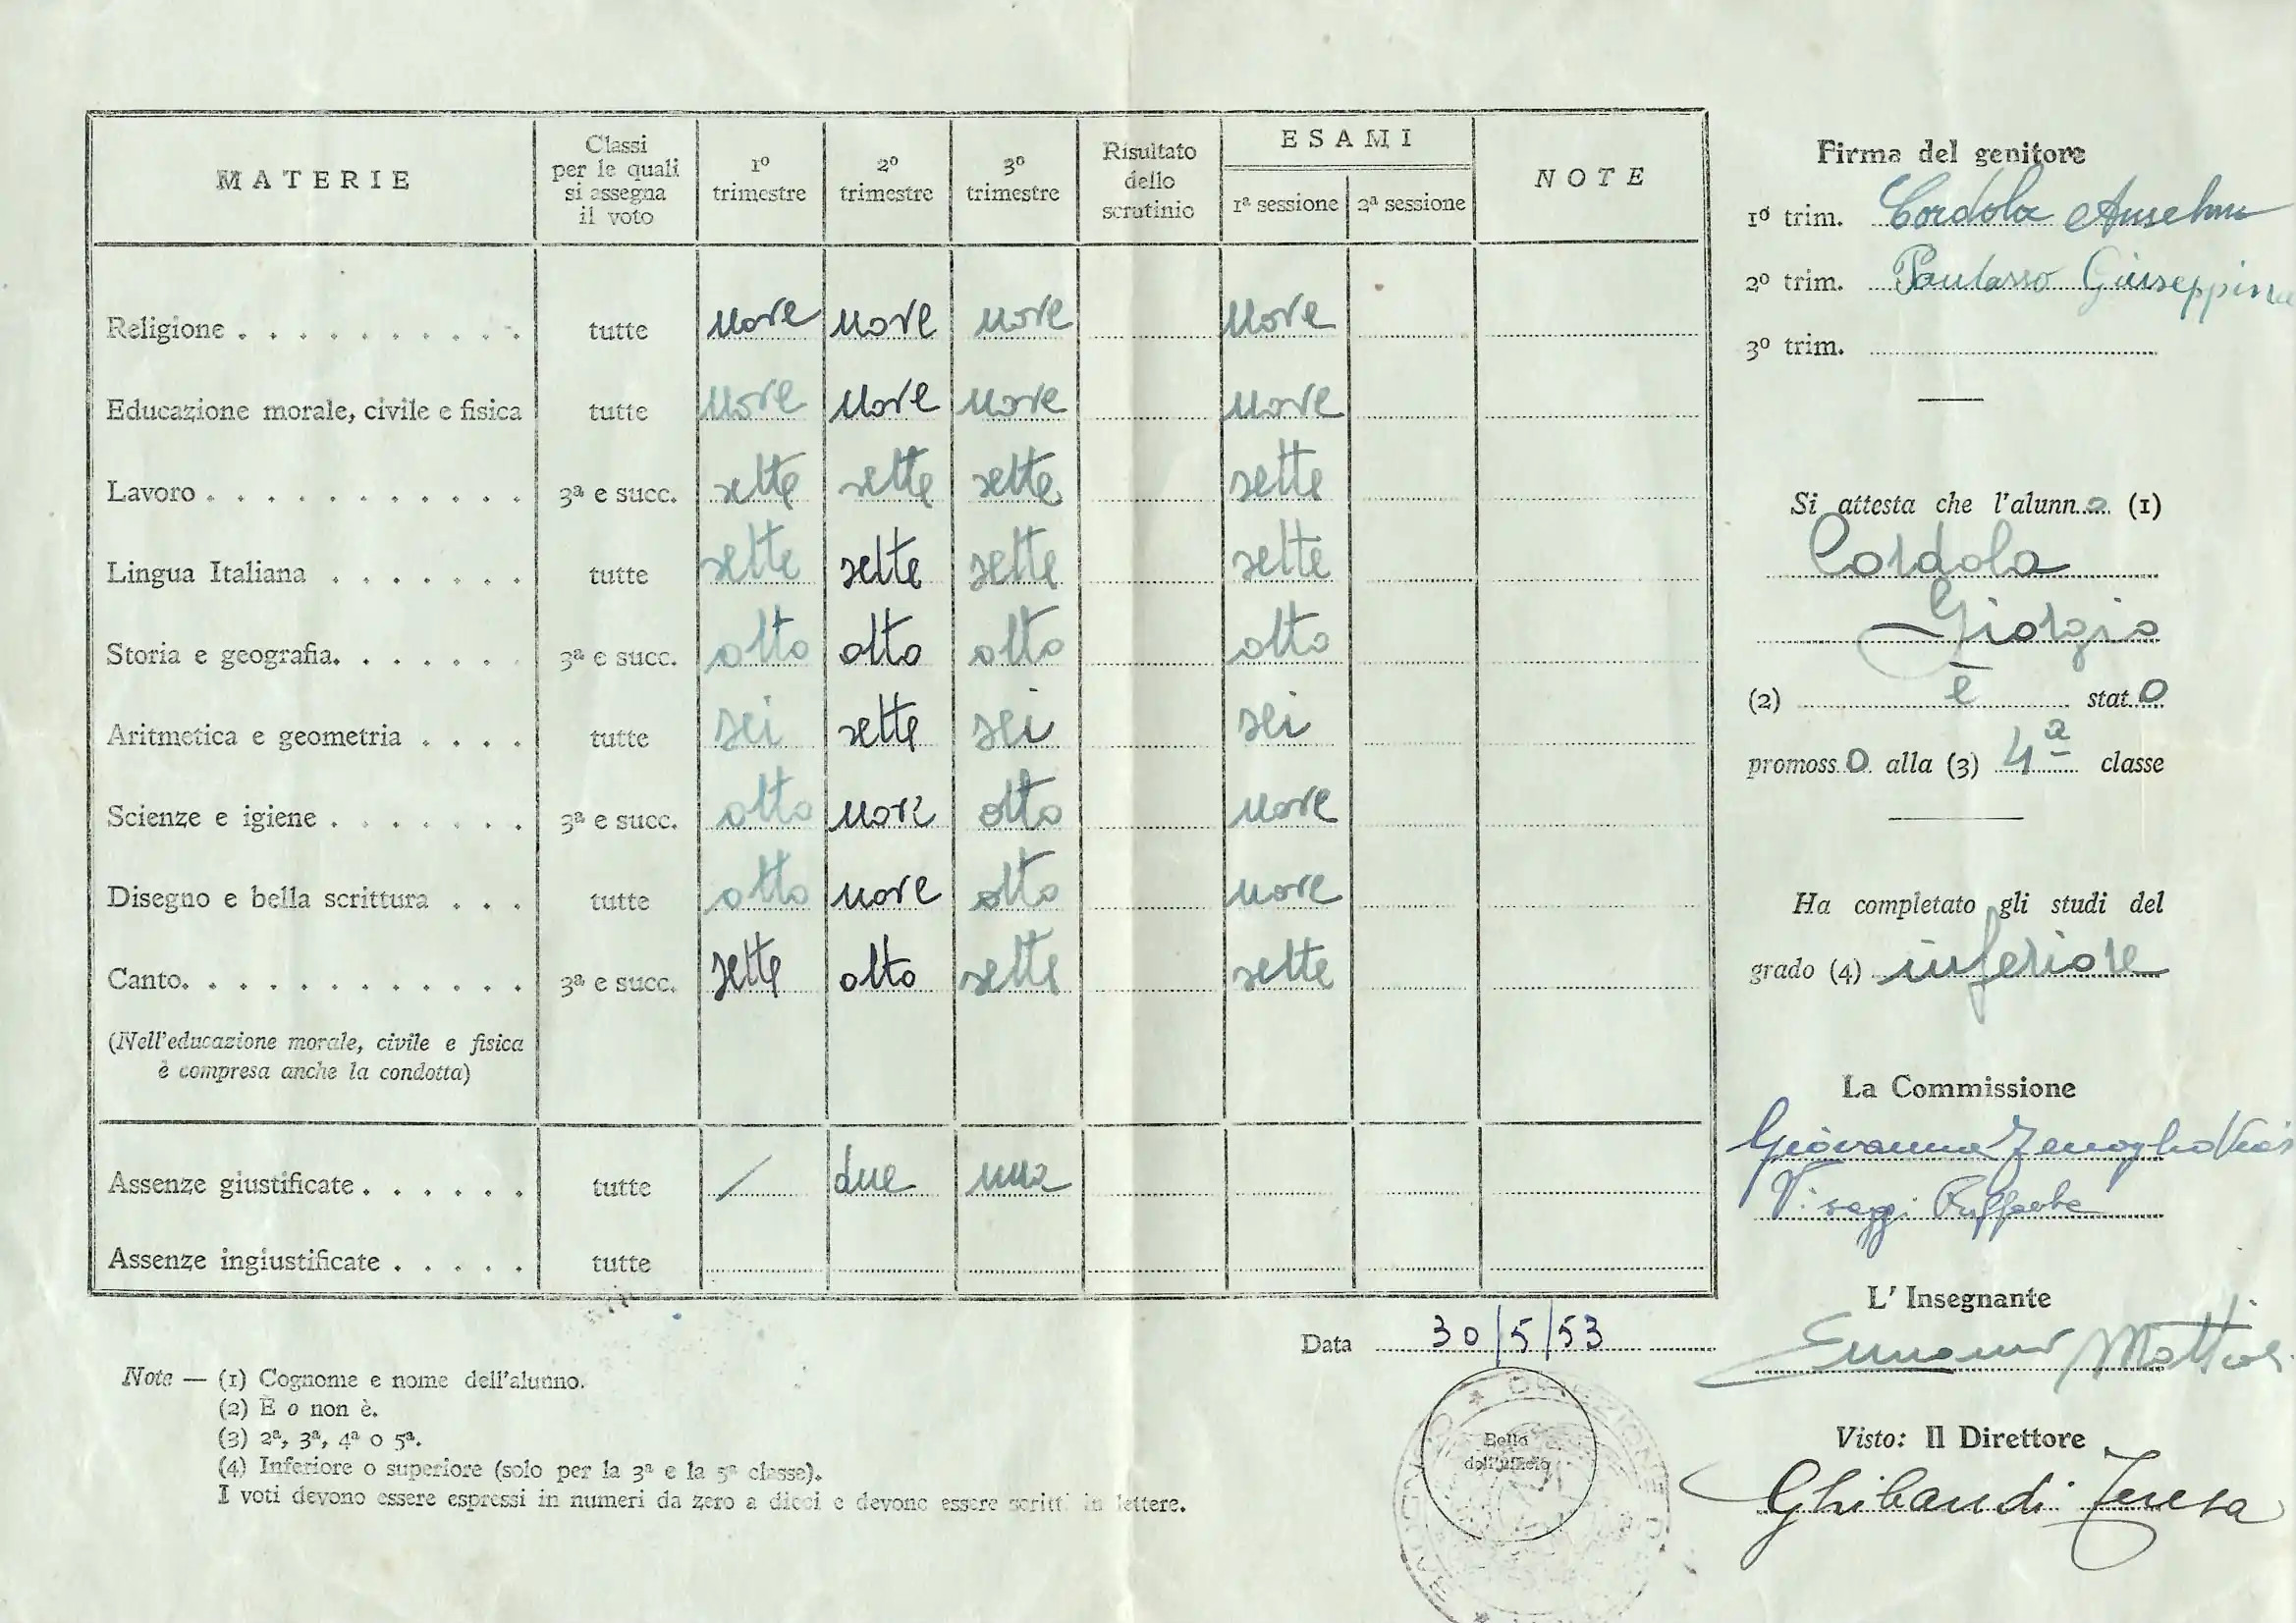 MATERIE
Classi per le quali si assegna il voto
1º trimestre
2º trimestre
3º trimestre
Risultato dello scrutinio
ESAMI
1ª sessione 2ª sessione
NOTE
Religione . . . . . . . . . . . tutte nove nove nove nove
Educazione morale, civile e fisica tutte nove nove nove nove
Lavoro . . . . . . . . . . . . 3ª e succ. sette sette sette sette
Lingua Italiana . . . . . . . tutte sette sette sette sette
Storia e geografia. . . . . . . 3ª e succ. otto otto otto otto
Aritmetica e geometria . . . . tutte sei sette sei sei
Scienze e igiene . . . . . . . 3ª e succ. otto nove otto nove
Disegno e bella scrittura . . . tutte otto nove otto nove
Canto. . . . . . . . . . . . . 3ª e succ. sette otto sette sette
(Nell'educazione morale, civile e fisica
è compresa anche la condotta)
Assenze giustificate . . . . . . tutte / due una
Assenze ingiustificate . . . . . tutte
Data 30/5/53
Note — (1) Cognome e nome dell'alunno.
(2) È o non è.
(3) 2ª, 3ª, 4ª o 5ª.
(4) Inferiore o superiore (solo per la 3ª e la 5ª classe).
I voti devono essere espressi in numeri da zero a dieci e devono essere scritti in lettere.
Bollo
dell'ufficio
Firma del genitore
1º trim. Cordola Anselmo
2º trim. Paulasso Giuseppina
3º trim.
Si attesta che l'alunno (1)
Cordola
Giorgio
(2) è stato
promosso alla (3) 4ª classe
Ha completato gli studi del
grado (4) inferiore
La Commissione
Giovanna
L'Insegnante
Visto: Il Direttore
Ghibaudi Teresa